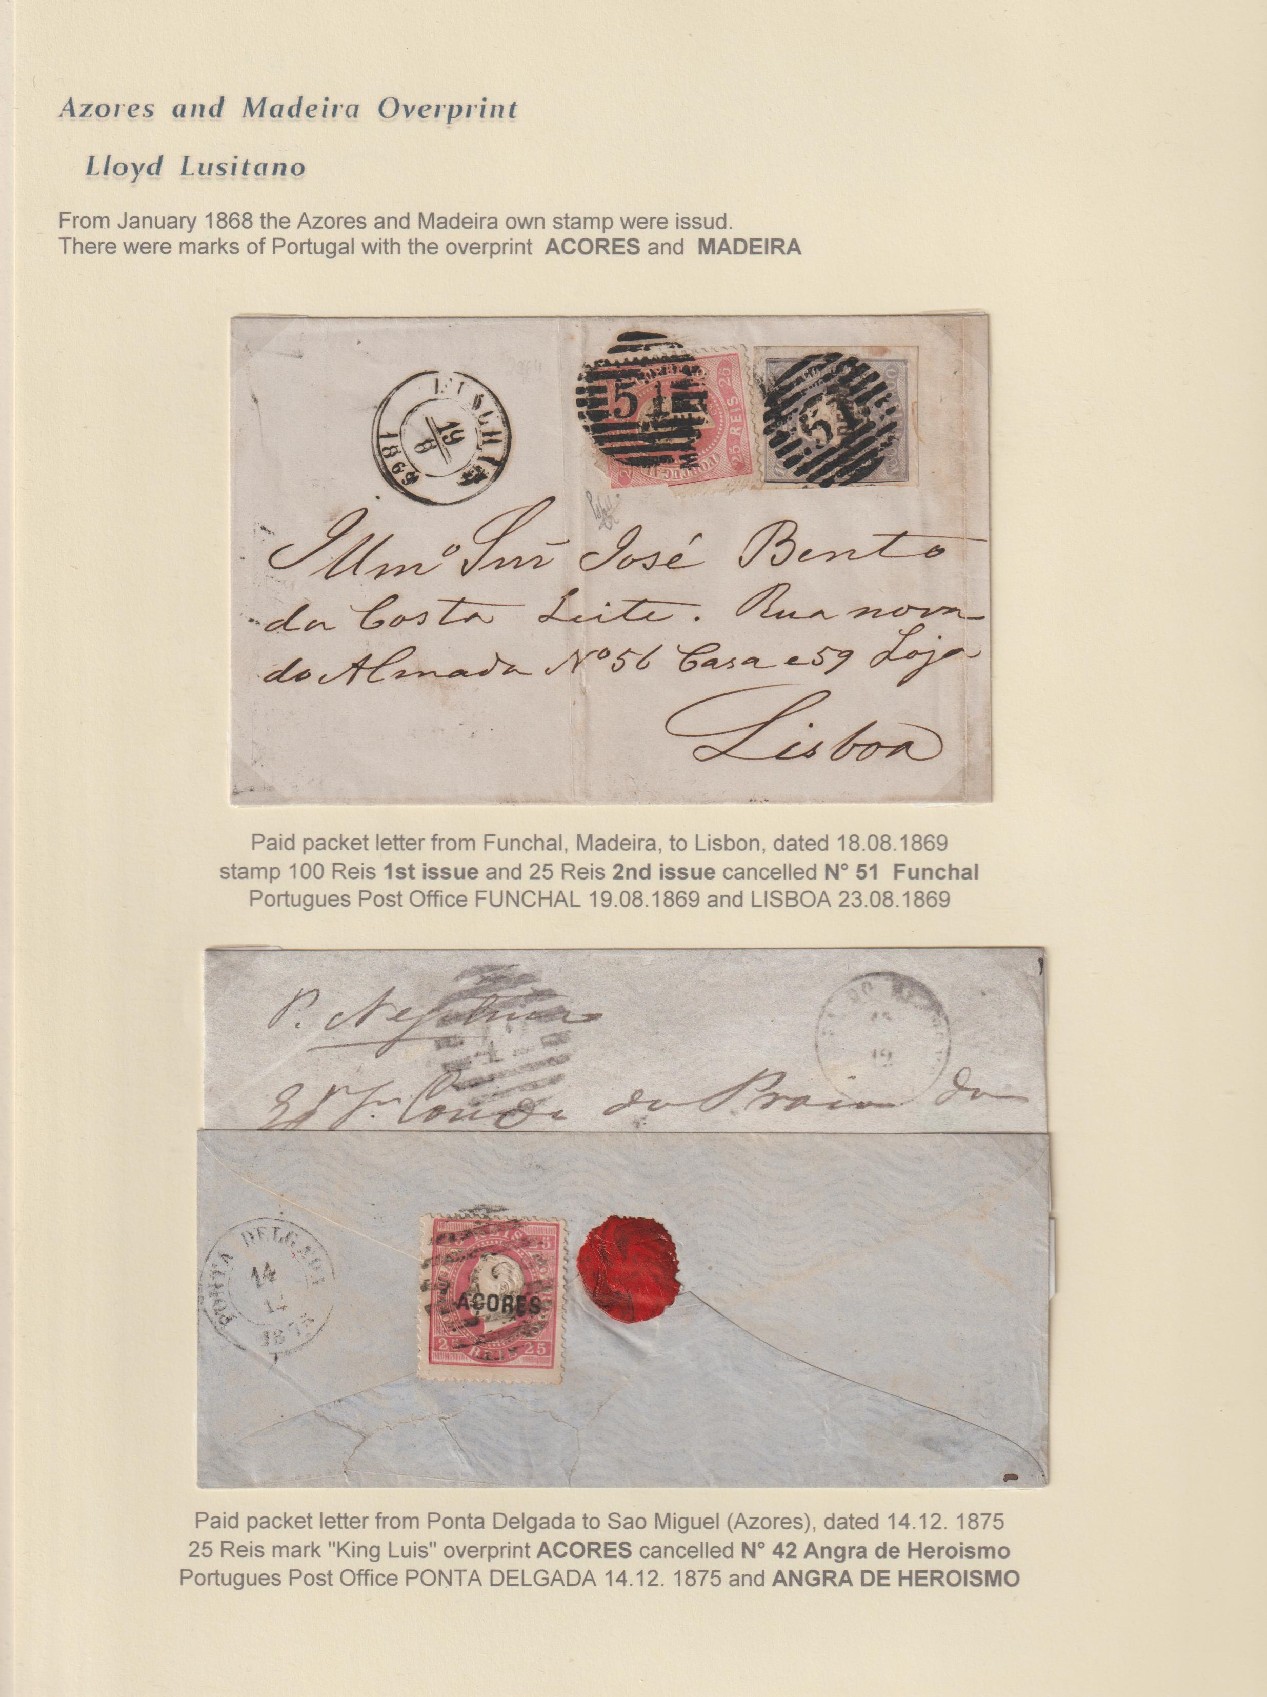 Azores and Madeira Overprint
Lloyd Lusitano
From January 1868 the Azores and Madeira own stamp were issud.
There were marks of Portugal with the overprint ACORES and MADEIRA
19
8
1869
51
MADEIRA
25 REIS 25
51
Illmo Snr José Bento
da Costa Leite. Rua nova
do Almada No 56 Casa e 59 Loja
Lisboa
Paid packet letter from Funchal, Madeira, to Lisbon, dated 18.08.1869
stamp 100 Reis 1st issue and 25 Reis 2nd issue cancelled N° 51 Funchal
Portugues Post Office FUNCHAL 19.08.1869 and LISBOA 23.08.1869
P.
Conde da Praia da
PONTA DELGADA
14
12
1875
AÇORES
25 REIS 25
Paid packet letter from Ponta Delgada to Sao Miguel (Azores), dated 14.12. 1875
25 Reis mark "King Luis" overprint ACORES cancelled N° 42 Angra de Heroismo
Portugues Post Office PONTA DELGADA 14.12. 1875 and ANGRA DE HEROISMO